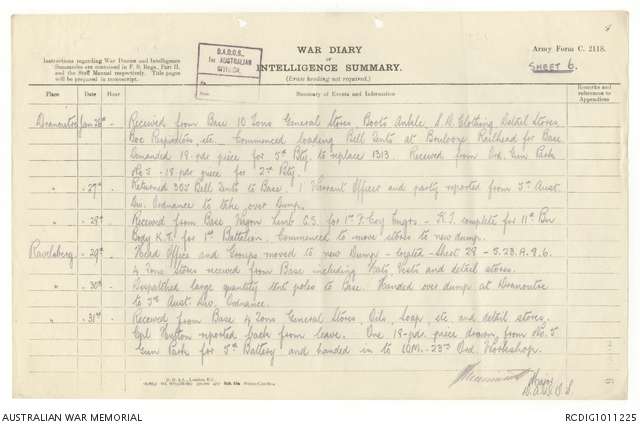 4
WAR DIARY
or
INTELLIGENCE SUMMARY.
(Erase heading not required.)
Army Form C. 2118.
SHEET 6.
Instructions regarding War Diaries and Intelligence
Summaries are contained in F. S. Regs., Part II.
and the Staff Manual respectively. Title pages
will be prepared in manuscript.
D.A.D.O.S.
1st AUSTRALIAN
DIVISION.
Place Date Hour Summary of Events and Information Remarks and references to Appendices
Dranoutre Jan 26th Received from Base 10 Tons General Stores, Boots Ankle, S.D. Clothing, Detail Stores,
Box Respirators, etc. Commenced loading Bell Tents at Railhead for Base
Demanded 18-pdr piece for 5th Bty to replace 1313. Received from Ord. Gun Park
No 5 - 18-pdr piece for 2nd Bty.
" " 27th Returned 305 Bell Tents to Base. 1 Warrant Officer and party reported from 3rd Aust.
Div. Ordnance to take over Dump.
" " 28th Received from Base Wagon Limb. G.S. for 1st F. Coy Engrs - K.T. complete for 11th Bn
Body K.T. for 1st Battalion. Commenced to move stores to new dump.
Ravelsberg " 29th Head Office and Groups moved to new Dump - located - Sheet 28 - S.23.A.9.6.
4 tons stores received from Base including Vests and detail stores.
" " 30th Despatched large quantity tent poles to Base. Handed over dump at Dranoutre
to 3rd Aust Div. Ordnance.
" " 31st Received from Base 4 tons General Stores, Oils, Soap, etc and detail stores.
Cpl Hutton reported back from leave. One 18-pdr. piece drawn from No. 5
Gun Park for 5th Battery and handed in to IOM. - 23rd Ord. Workshop.
Major
D.A.D.O.S.
D. D. & L., London, E.C.
AUSTRALIAN WAR MEMORIAL
RCDIG1011225